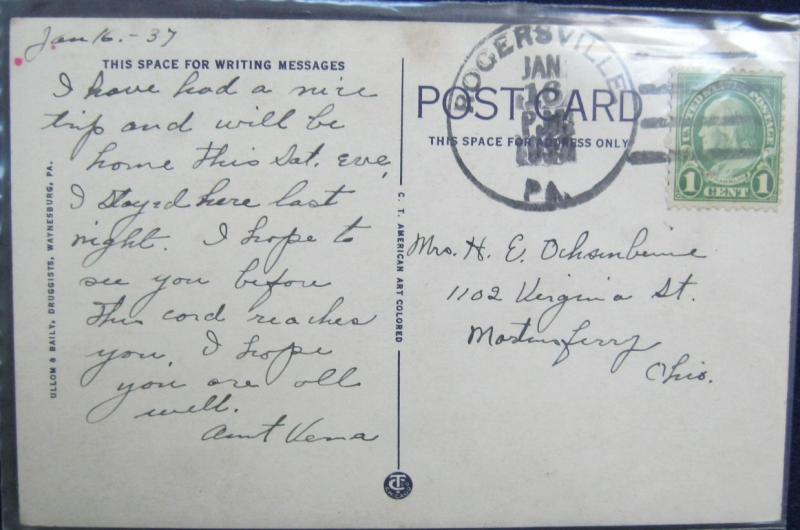 Jan 16.-37
THIS SPACE FOR WRITING MESSAGES
I have had a nice
trip and will be
home this Sat. eve,
I stayed here last
night. I hope to
see you before
this card reaches
you, I hope
you are all
well.
Aunt Verna
ULLOM & BAILY, DRUGGISTS, WAYNESBURG, PA.
C. T. AMERICAN ART COLORED
POST CARD
THIS SPACE FOR ADDRESS ONLY
ROGERSVILLE
JAN
16
PM
PA.
UNITED STATES POSTAGE
1 CENT 1
Mrs. H. E. Ochsenbeine
1102 Virginia St.
Martinsferry
Ohio.